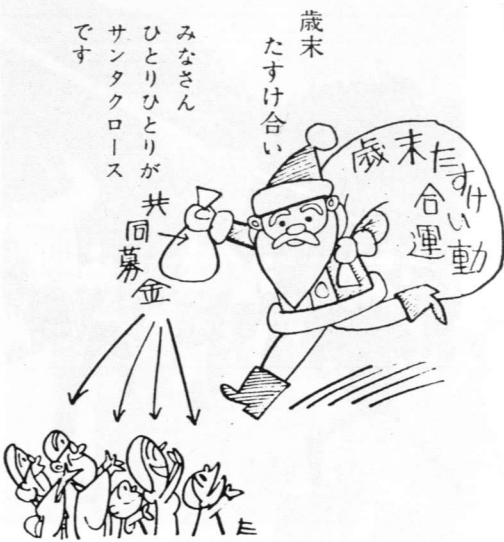 歳末
たすけ合い
みなさん
ひとりひとりが
サンタクロース
です
歳末たすけ
合い
運動
共同募金